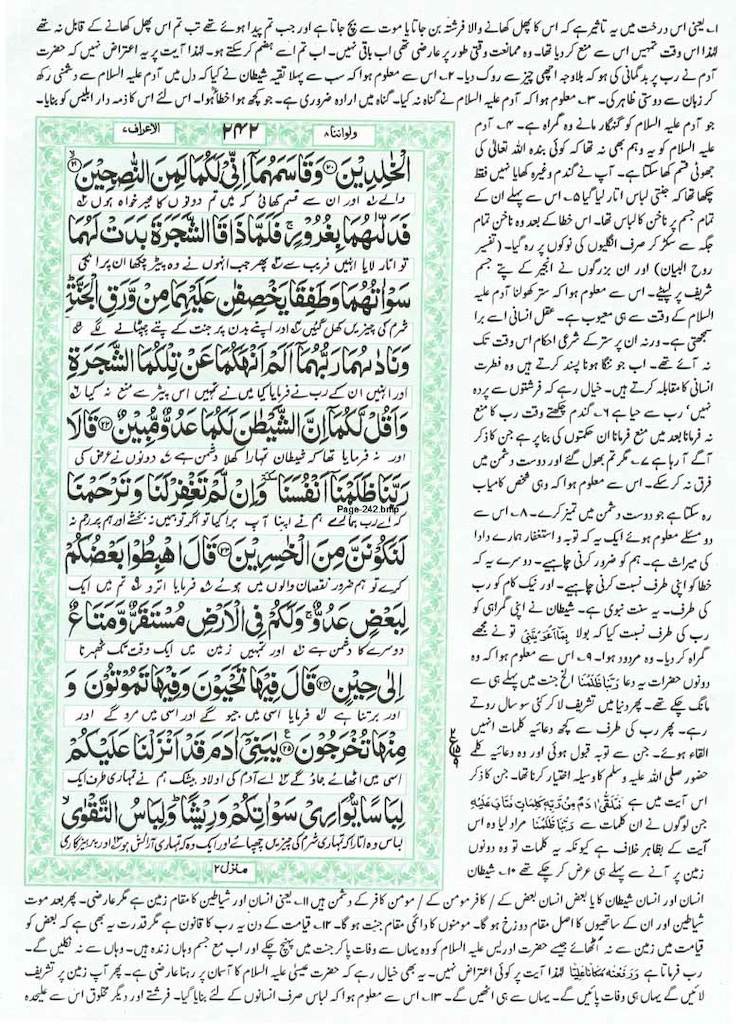 ۱۔ یعنی اس درخت میں یہ تاثیر ہے کہ اس کا پھل کھانے والا فرشتہ بن جاتا یا موت سے بچ جاتا ہے اور جب تم پیدا ہوئے تھے تب تم اس پھل کھانے کے قابل نہ تھے
لہٰذا اس وقت تمہیں اس سے منع کر دیا تھا۔ وہ ممانعت وقتی طور پر عارضی تھی اب باقی نہیں۔ اب تم اسے ہضم کر سکتے ہو۔ لہٰذا آیت پر یہ اعتراض نہیں کہ حضرت
آدم نے رب پر بدگمانی کی ہو کہ بلاوجہ اچھی چیز سے روک دیا۔ ۲۔ اس سے معلوم ہوا کہ سب سے پہلا تقیہ شیطان نے کیا کہ دل میں آدم علیہ السلام سے دشمنی رکھ
کر زبان سے دوستی ظاہر کی۔ ۳۔ معلوم ہوا کہ آدم علیہ السلام نے گناہ نہ کیا۔ گناہ میں ارادہ ضروری ہے۔ جو کچھ ہوا خطأً ہوا۔ اس لئے اس کا ذمہ دار ابلیس کو بنایا۔
ولواننا ۸
۲۴۲
الاعراف ۷
الْخٰلِدِیْنَ ۝۲۰ وَقَاسَمَهُمَاۤ اِنِّیْ لَكُمَا لَمِنَ النّٰصِحِیْنَ ۝۲۱
والے اور ان سے قسم کھائی کہ میں تم دونوں کا خیر خواہ ہوں
فَدَلّٰىهُمَا بِغُرُوْرٍ ۚ فَلَمَّا ذَاقَا الشَّجَرَةَ بَدَتْ لَهُمَا
تو اتار لایا انہیں فریب سے پھر جب انہوں نے وہ پیڑ چکھا ان پر انکی
سَوْاٰتُهُمَا وَطَفِقَا یَخْصِفٰنِ عَلَیْهِمَا مِنْ وَّرَقِ الْجَنَّةِ ؕ
شرم کی چیزیں کھل گئیں اور اپنے بدن پر جنت کے پتے چپٹانے لگے
وَنَادٰىهُمَا رَبُّهُمَاۤ اَلَمْ اَنْهَكُمَا عَنْ تِلْكُمَا الشَّجَرَةِ
اور انہیں ان کے رب نے فرمایا کیا میں نے تمہیں اس پیڑ سے منع نہ کیا
وَاَقُلْ لَّكُمَاۤ اِنَّ الشَّیْطٰنَ لَكُمَا عَدُوٌّ مُّبِیْنٌ ۝۲۲ قَالَا
اور نہ فرمایا تھا کہ شیطان تمہارا کھلا دشمن ہے دونوں نے عرض کی
رَبَّنَا ظَلَمْنَاۤ اَنْفُسَنَا وَاِنْ لَّمْ تَغْفِرْ لَنَا وَتَرْحَمْنَا
Page-242.bmp
کہ اے رب ہمارے ہم نے اپنا آپ برا کیا تو اگر تو ہمیں نہ بخشے اور ہم پر رحم نہ
لَنَكُوْنَنَّ مِنَ الْخٰسِرِیْنَ ۝۲۳ قَالَ اهْبِطُوْا بَعْضُكُمْ
کرے تو ہم ضرور نقصان والوں میں ہوئے فرمایا اترو تم میں ایک
لِبَعْضٍ عَدُوٌّ ۚ وَلَكُمْ فِی الْاَرْضِ مُسْتَقَرٌّ وَّمَتَاعٌ
دوسرے کا دشمن ہے اور تمہیں زمین میں ایک وقت تک ٹھہرنا
اِلٰی حِیْنٍ ۝۲۴ قَالَ فِیْهَا تَحْیَوْنَ وَفِیْهَا تَمُوْتُوْنَ وَ
اور برتنا ہے فرمایا اسی میں جیو گے اور اسی میں مرو گے اور
مِنْهَا تُخْرَجُوْنَ ۝۲۵ یٰبَنِیْۤ اٰدَمَ قَدْ اَنْزَلْنَا عَلَیْكُمْ
اسی میں اٹھائے جاؤ گے اے آدم کی اولاد بیشک ہم نے تمہاری طرف ایک
لِبَاسًا یُّوَارِیْ سَوْاٰتِكُمْ وَرِیْشًا ؕ وَلِبَاسُ التَّقْوٰی
لباس وہ اتارا کہ تمہاری شرم کی چیزیں چھپائے اور ایک وہ کہ تمہاری آرائش ہو اور پرہیزگاری
منزل ۲
جو آدم علیہ السلام کو گنہگار مانے وہ گمراہ ہے۔ ۴۔ آدم
علیہ السلام کو یہ وہم بھی نہ تھا کہ کوئی بندہ اللہ تعالیٰ کی
جھوٹی قسم کھا سکتا ہے۔ آپ نے گندم وغیرہ کھایا نہیں فقط
چکھا تھا کہ جنتی لباس اتار لیا گیا ۵۔ اس سے پہلے ان کے
تمام جسم پر ناخن کا لباس تھا۔ اس خطا کے بعد وہ ناخن تمام
جگہ سے سکڑ کر صرف انگلیوں کی نوکوں پر رہ گیا۔ (تفسیر
روح البیان) اور ان بزرگوں نے انجیر کے پتے جسم
شریف پر لپیٹے۔ اس سے معلوم ہوا کہ ستر کھولنا آدم علیہ
السلام کے وقت سے ہی معیوب ہے۔ عقل انسانی اسے برا
سمجھتی ہے۔ ورنہ ان پر ستر کے شرعی احکام اس وقت تک
نہ آئے تھے۔ اب جو ننگا ہونا پسند کرتے ہیں وہ فطرت
انسانی کا مقابلہ کرتے ہیں۔ خیال رہے کہ فرشتوں سے پردہ
نہیں، رب سے حیا ہے ۶۔ گندم چکھتے وقت رب کا منع
نہ فرمانا بعد میں منع فرمانا ان حکمتوں کی بنا پر ہے جن کا ذکر
آگے آ رہا ہے ۷۔ مگر تم بھول گئے اور دوست دشمن میں
فرق نہ کر سکے۔ اس سے معلوم ہوا کہ وہی شخص کامیاب
رہ سکتا ہے جو دوست دشمن میں تمیز کرے۔ ۸۔ اس سے
دو مسئلے معلوم ہوئے ایک یہ کہ توبہ و استغفار ہمارے دادا
کی میراث ہے۔ ہم کو ضرور کرنی چاہیے۔ دوسرے یہ کہ
خطا کو اپنی طرف نسبت کرنی چاہیے۔ اور نیک کام کو رب
کی طرف۔ یہ سنت نبوی ہے۔ شیطان نے اپنی گمراہی کو
رب کی طرف نسبت کیا کہ بولا بِمَاۤ اَغْوَیْتَنِیْ تو نے مجھے
گمراہ کر دیا۔ وہ مردود ہوا۔ ۹۔ اس سے معلوم ہوا کہ وہ
دونوں حضرات یہ دعا رَبَّنَا ظَلَمْنَا الخ جنت میں پہلے ہی سے
مانگ چکے تھے۔ پھر دنیا میں تشریف لا کر کئی سو سال روتے
رہے۔ پھر رب کی طرف سے کچھ دعائیہ کلمات انہیں
القاء ہوئے۔ جن سے توبہ قبول ہوئی اور وہ دعائیہ کلمے
حضور صلی اللہ علیہ وسلم کا وسیلہ اختیار کرنا تھا۔ جن کا ذکر
اس آیت میں ہے فَتَلَقّٰۤی اٰدَمُ مِنْ رَّبِّهٖ كَلِمَاتٍ فَتَابَ عَلَیْهِ
جن لوگوں نے ان کلمات سے رَبَّنَا ظَلَمْنَا مراد لیا وہ اس
آیت کے بظاہر خلاف ہے کیونکہ یہ کلمات تو وہ دونوں
زمین پر آنے سے پہلے ہی عرض کر چکے تھے ۱۰۔ شیطان
اور انسان شیطان کا یا بعض انسان بعض کے / کافر مومن کے / مومن کافر کے دشمن ہیں ۱۱۔ یعنی انسان اور شیاطین کا مقام زمین ہے مگر عارضی۔ پھر بعد موت
شیاطین اور ان کے ساتھیوں کا اصل مقام دوزخ ہو گا۔ مومنوں کا دائمی مقام جنت ہو گا۔ ۱۲۔ قیامت کے دن یہ رب کا قانون ہے مگر قدرت یہ بھی ہے کہ بعض کو
قیامت میں زمین سے نہ اٹھائے جیسے حضرت ادریس علیہ السلام کو وہ یہاں سے وفات پا کر جنت میں پہنچ چکے اور اب مع جسم وہاں زندہ ہیں۔ وہاں سے نہ نکلیں گے۔
رب فرماتا ہے وَرَفَعْنٰهُ مَكَانًا عَلِیًّا لہٰذا آیت پر کوئی اعتراض نہیں۔ یہ بھی خیال رہے کہ حضرت عیسیٰ علیہ السلام کا آسمان پر رہنا عارضی ہے۔ پھر آپ زمین پر تشریف
لائیں گے یہاں ہی وفات پائیں گے۔ یہاں سے ہی اٹھیں گے۔ ۱۳۔ اس سے معلوم ہوا کہ لباس صرف انسانوں کے لئے بنایا گیا۔ فرشتے اور دیگر مخلوق اس سے علیحدہ